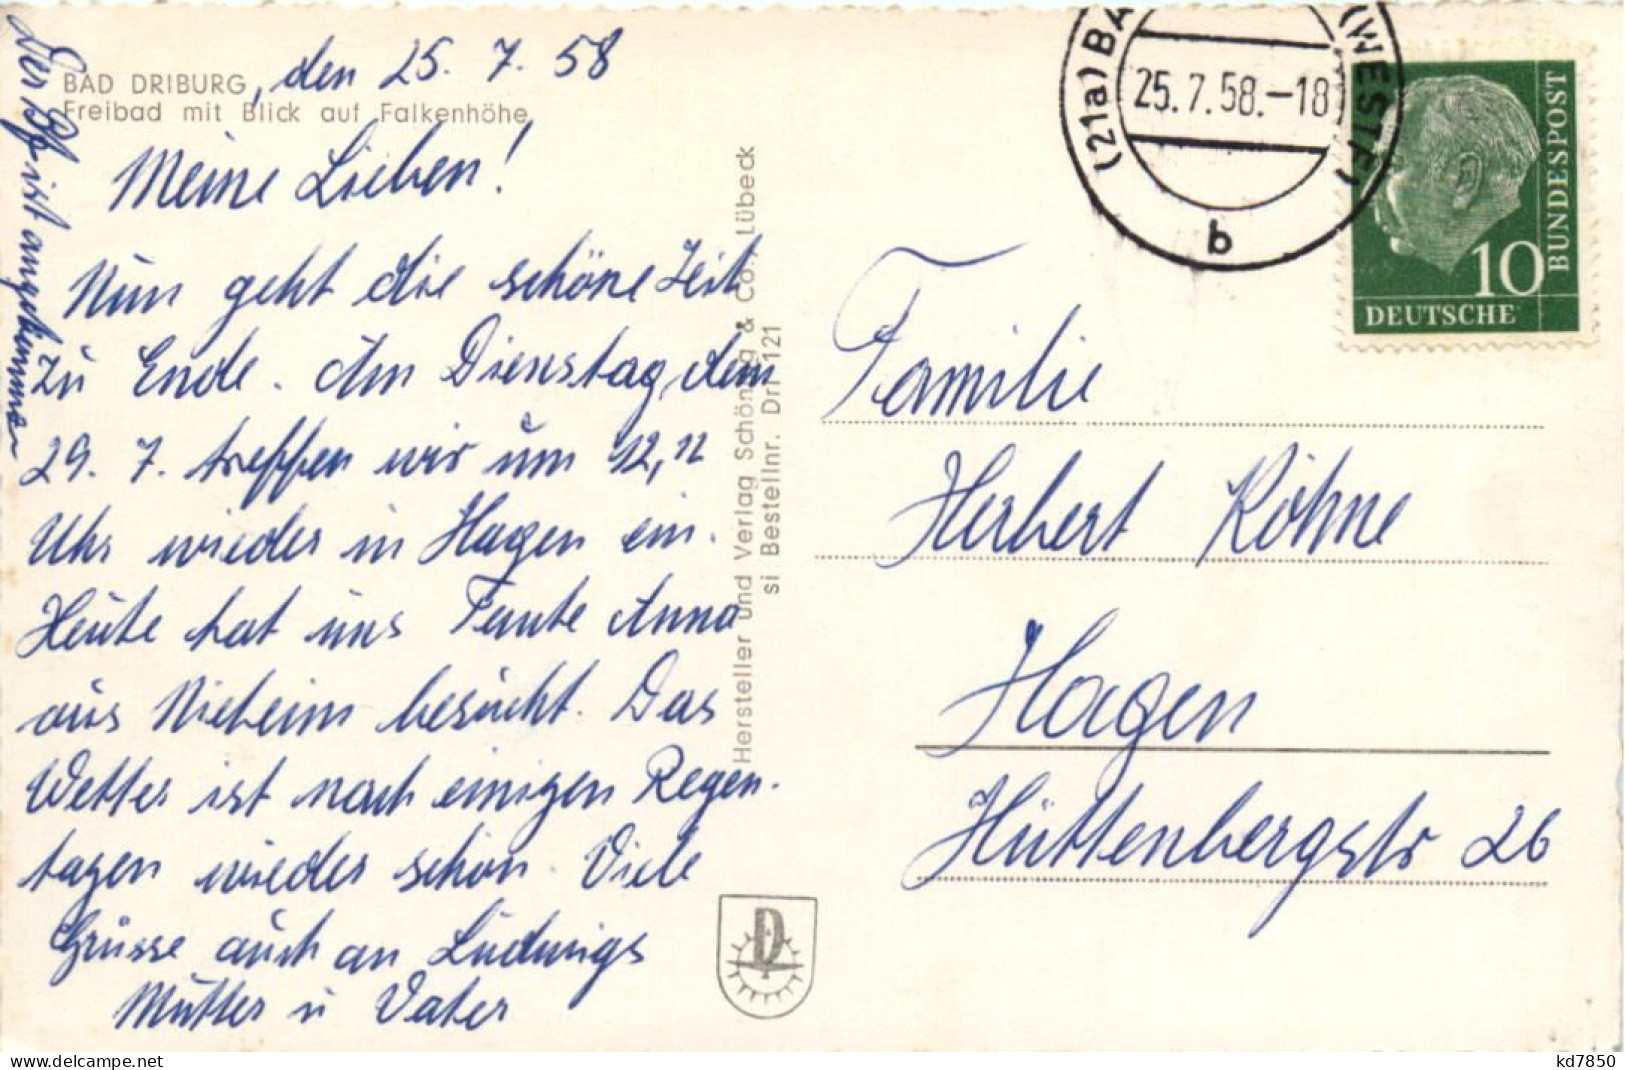 BAD DRIBURG, den 25. 7. 58
Freibad mit Blick auf Falkenhöhe
Meine Lieben!
Nun geht die schöne Zeit
zu Ende. Am Dienstag, dem
29. 7. treffen wir um 12,12
Uhr wieder in Hagen ein.
Heute hat uns Tante Anna
aus Nieheim besucht. Das
Wetter ist nach einigen Regen-
tagen wieder schön. Viele
Grüsse auch an Ludwigs
Mutter u Vater
Der ist angekommen
Hersteller und Verlag Schöning & Co., Lübeck
si Bestellnr. Dri 121
D
(21a) BA (WESTF)
25.7.58.-18
b
10
DEUTSCHE
BUNDESPOST
Familie
Herbert Köhne
Hagen
Hüttenbergstr 26
www.delcampe.net
kd7850